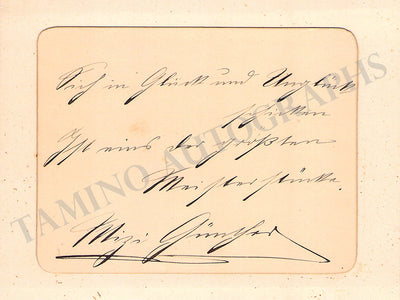 Sich in Glück und Unglück
schicken
Ist eins der größten
Meisterstücke.
Mizi Günther
TAMINO AUTOGRAPHS